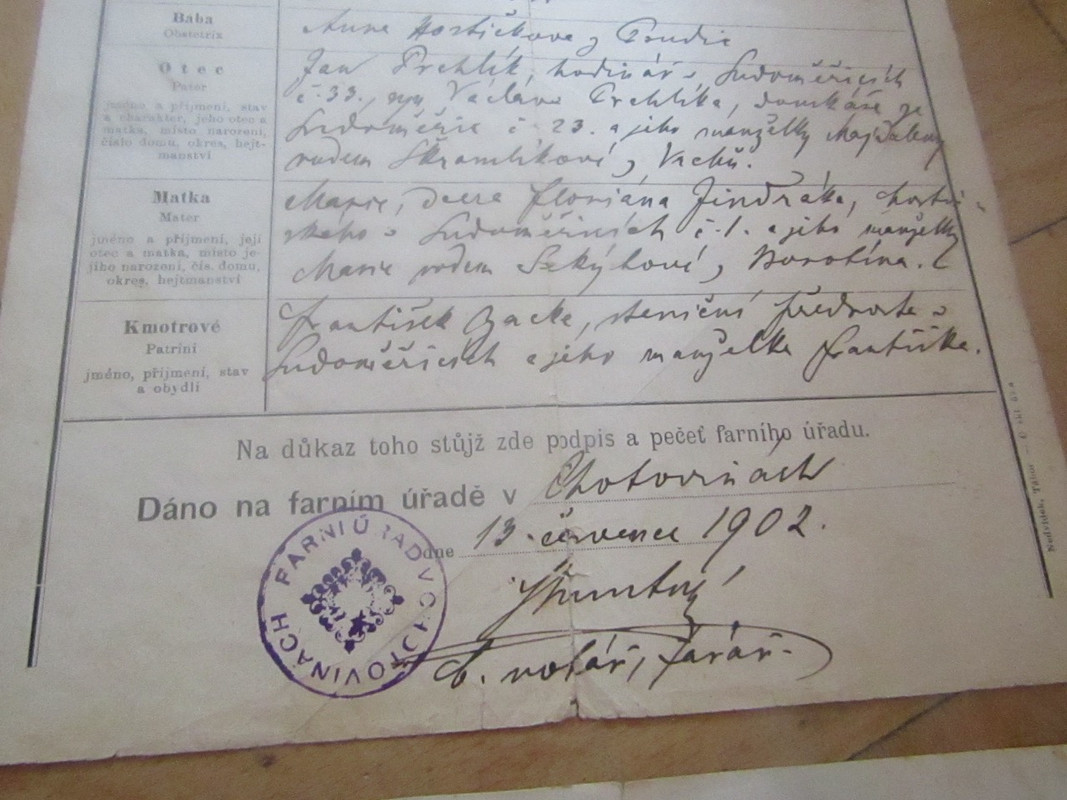 Baba
Obstetrix
Anna Hostičkova z
Otec
Pater
jméno a příjmení, stav
a charakter, jeho otec a
matka, místo narození,
číslo domu, okres, hejt-
manství
Jan Prchlík, hodinář v Sudoměřicích
č. 33., syn Václava Prchlíka, domkáře ze
Sudoměřic č 23. a jeho manželky Majdaleny
rodem Škramlíkové z
Matka
Mater
jméno a příjmení, její
otec a matka, místo je-
jího narození, čís. domu,
okres, hejtmanství
Marie, dcera Floriána Jindráka, hostin-
ského v Sudoměřicích č. 1. a jeho manželky
Marie rodem z Borotína.
Kmotrové
Patrini
jméno, příjmení, stav
a obydlí
František staniční v
Sudoměřicích a jeho manželka Františka.
Na důkaz toho stůjž zde podpis a pečeť farního úřadu.
Dáno na farním úřadě v Chotovinách
dne 13. července 1902.
FARNÍ ÚŘAD V CHOTOVINÁCH
b. notář, farář.